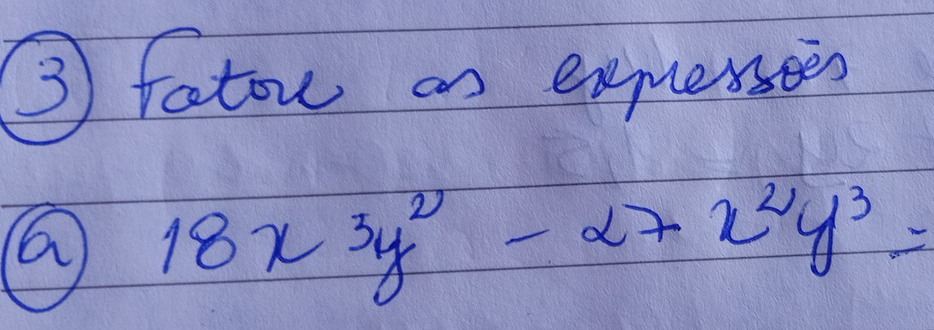 ③ Fatore as expressões
ⓐ 18x³y² - 27x²y³ =